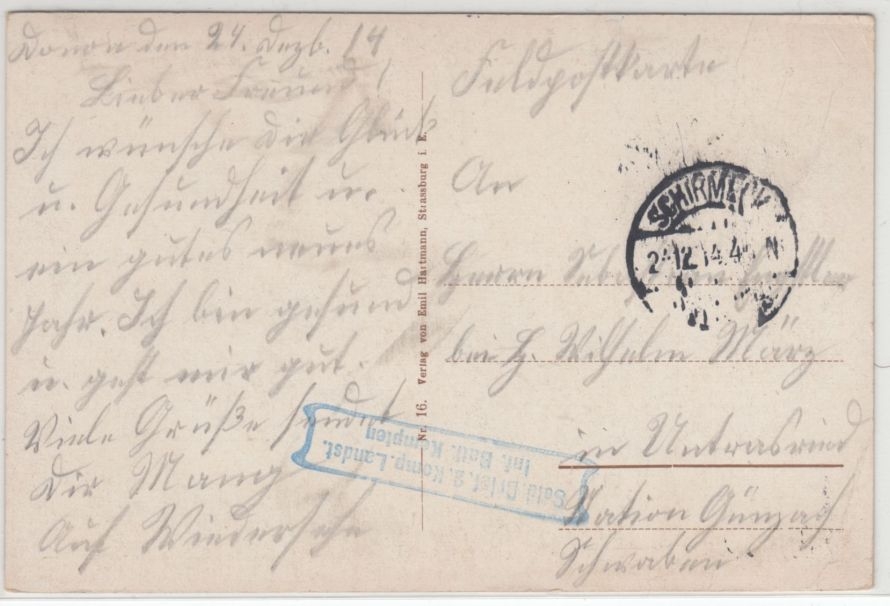 Donon den 24. Dezb. 14
Lieber Freund!
Ich wünsche Dir Glück
u. Gesundheit u.
ein gutes neues
Jahr. Ich bin gesund
u. geht mir gut.
Viele Grüße sendet
Dir Mang
Auf Wiedersehn
Nr. 16. Verlag von Emil Hartmann, Strassburg i. E.
Feldpostkarte
An
SCHIRMECK
24.12.14.4 N
Herrn
bei H. Wilhelm März
in Untrasried
Station Günzach
Schwaben
Sold. Brief. 2. Komp. Landst.
Inf. Batl. Kempten